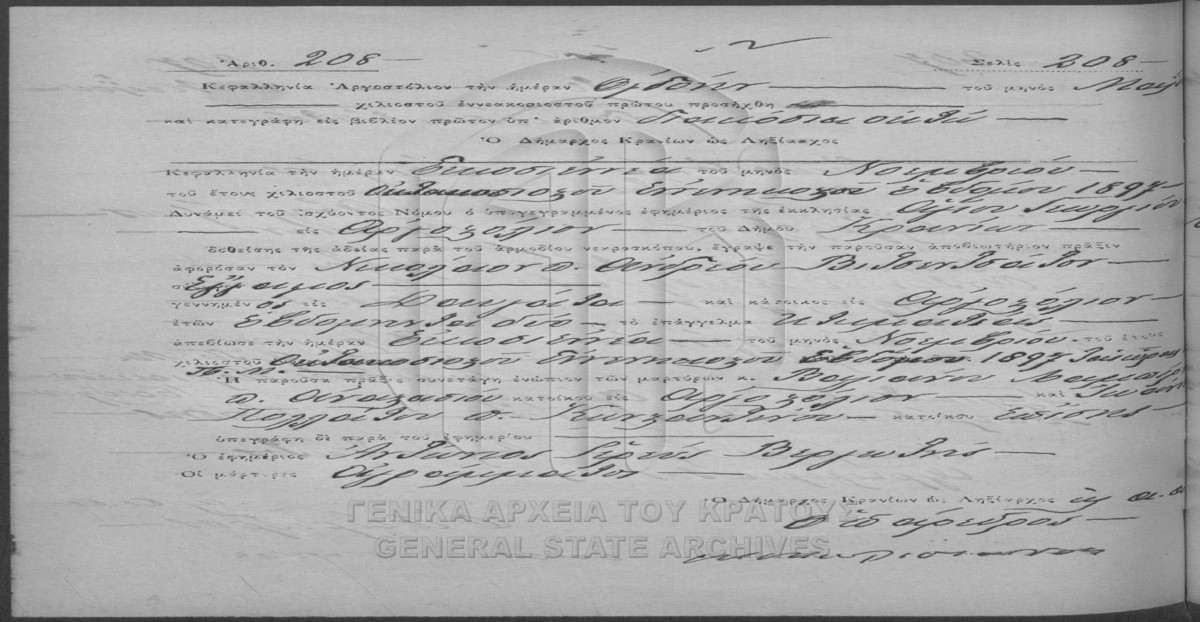 Ἀριθ. 208 — Σελὶς 208 —
Κεφαλληνία Ἀργοστόλιον τὴν ἡμέραν Ὀγδόην — τοῦ μηνὸς
— χιλιοστοῦ ἐννεακοσιοστοῦ πρώτου προσήχθη —
καὶ κατεγράφη εἰς βιβλίον πρῶτον ὑπ' ἀριθμὸν διακόσια ὀκτώ —
Ὁ Δήμαρχος Κρανίων ὡς Ληξίαρχος
Κεφαλληνία τὴν ἡμέραν Εἰκοστὴ ἐννέα τοῦ μηνὸς Νοεμβρίου —
τοῦ ἔτους χιλιοστοῦ Ὀκτακοσιοστοῦ Ἐννενηκοστοῦ ἑβδόμου 1897 —
Δυνάμει τοῦ ἰσχύοντος Νόμου ὁ ὑπογεγραμμένος ἐφημέριος τῆς ἐκκλησίας Ἁγίου Γεωργίου
— εἰς Ἀργοστόλιον — τοῦ Δήμου Κρανίων —
δοθείσης τῆς ἀδείας παρὰ τοῦ ἁρμοδίου νεκροσκόπου, ἔγραψε τὴν παροῦσαν ἀποβιωτήριον πρᾶξιν
ἀφορῶσαν τὸν Νικόλαον π. Ἀνδρέου —
Ἔγγαμος —
γεννημένος εἰς — καὶ κάτοικος εἰς Ἀργοστόλιον —
ἐτῶν ἑβδομήντα δύο — τὸ ἐπάγγελμα κτηματίας —
ἀπεβίωσε τὴν ἡμέραν Εἰκοστὴ ἐννέα — τοῦ μηνὸς Νοεμβρίου τοῦ ἔτους
χιλιοστοῦ Ὀκτακοσιοστοῦ Ἐννενηκοστοῦ Ἑβδόμου 1897
Ἡ παροῦσα πρᾶξις συνετάγη ἐνώπιον τῶν μαρτύρων κ.
π. Ἀναστασίου κατοίκου εἰς Ἀργοστόλιον — καὶ
π. Κωνσταντίνου — κατοίκου ἐπίσης —
ὑπεγράφη δὲ παρὰ τοῦ ἐφημερίου —
Ὁ ἐφημέριος Ἀντώνιος Ἱερεὺς —
Οἱ μάρτυρες Ἀγράμματοι —
Ὁ Δήμαρχος Κρανίων ὡς Ληξίαρχος
Ὁ πάρεδρος —
ΓΕΝΙΚΑ ΑΡΧΕΙΑ ΤΟΥ ΚΡΑΤΟΥΣ
GENERAL STATE ARCHIVES